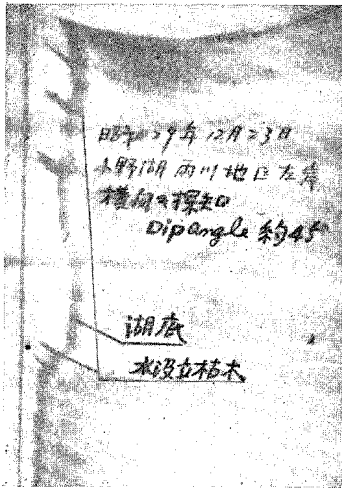 昭和29年12月23日
小野湖 両川地区左岸
横向き探知
Dipangle 約45°
湖底
水没立枯木